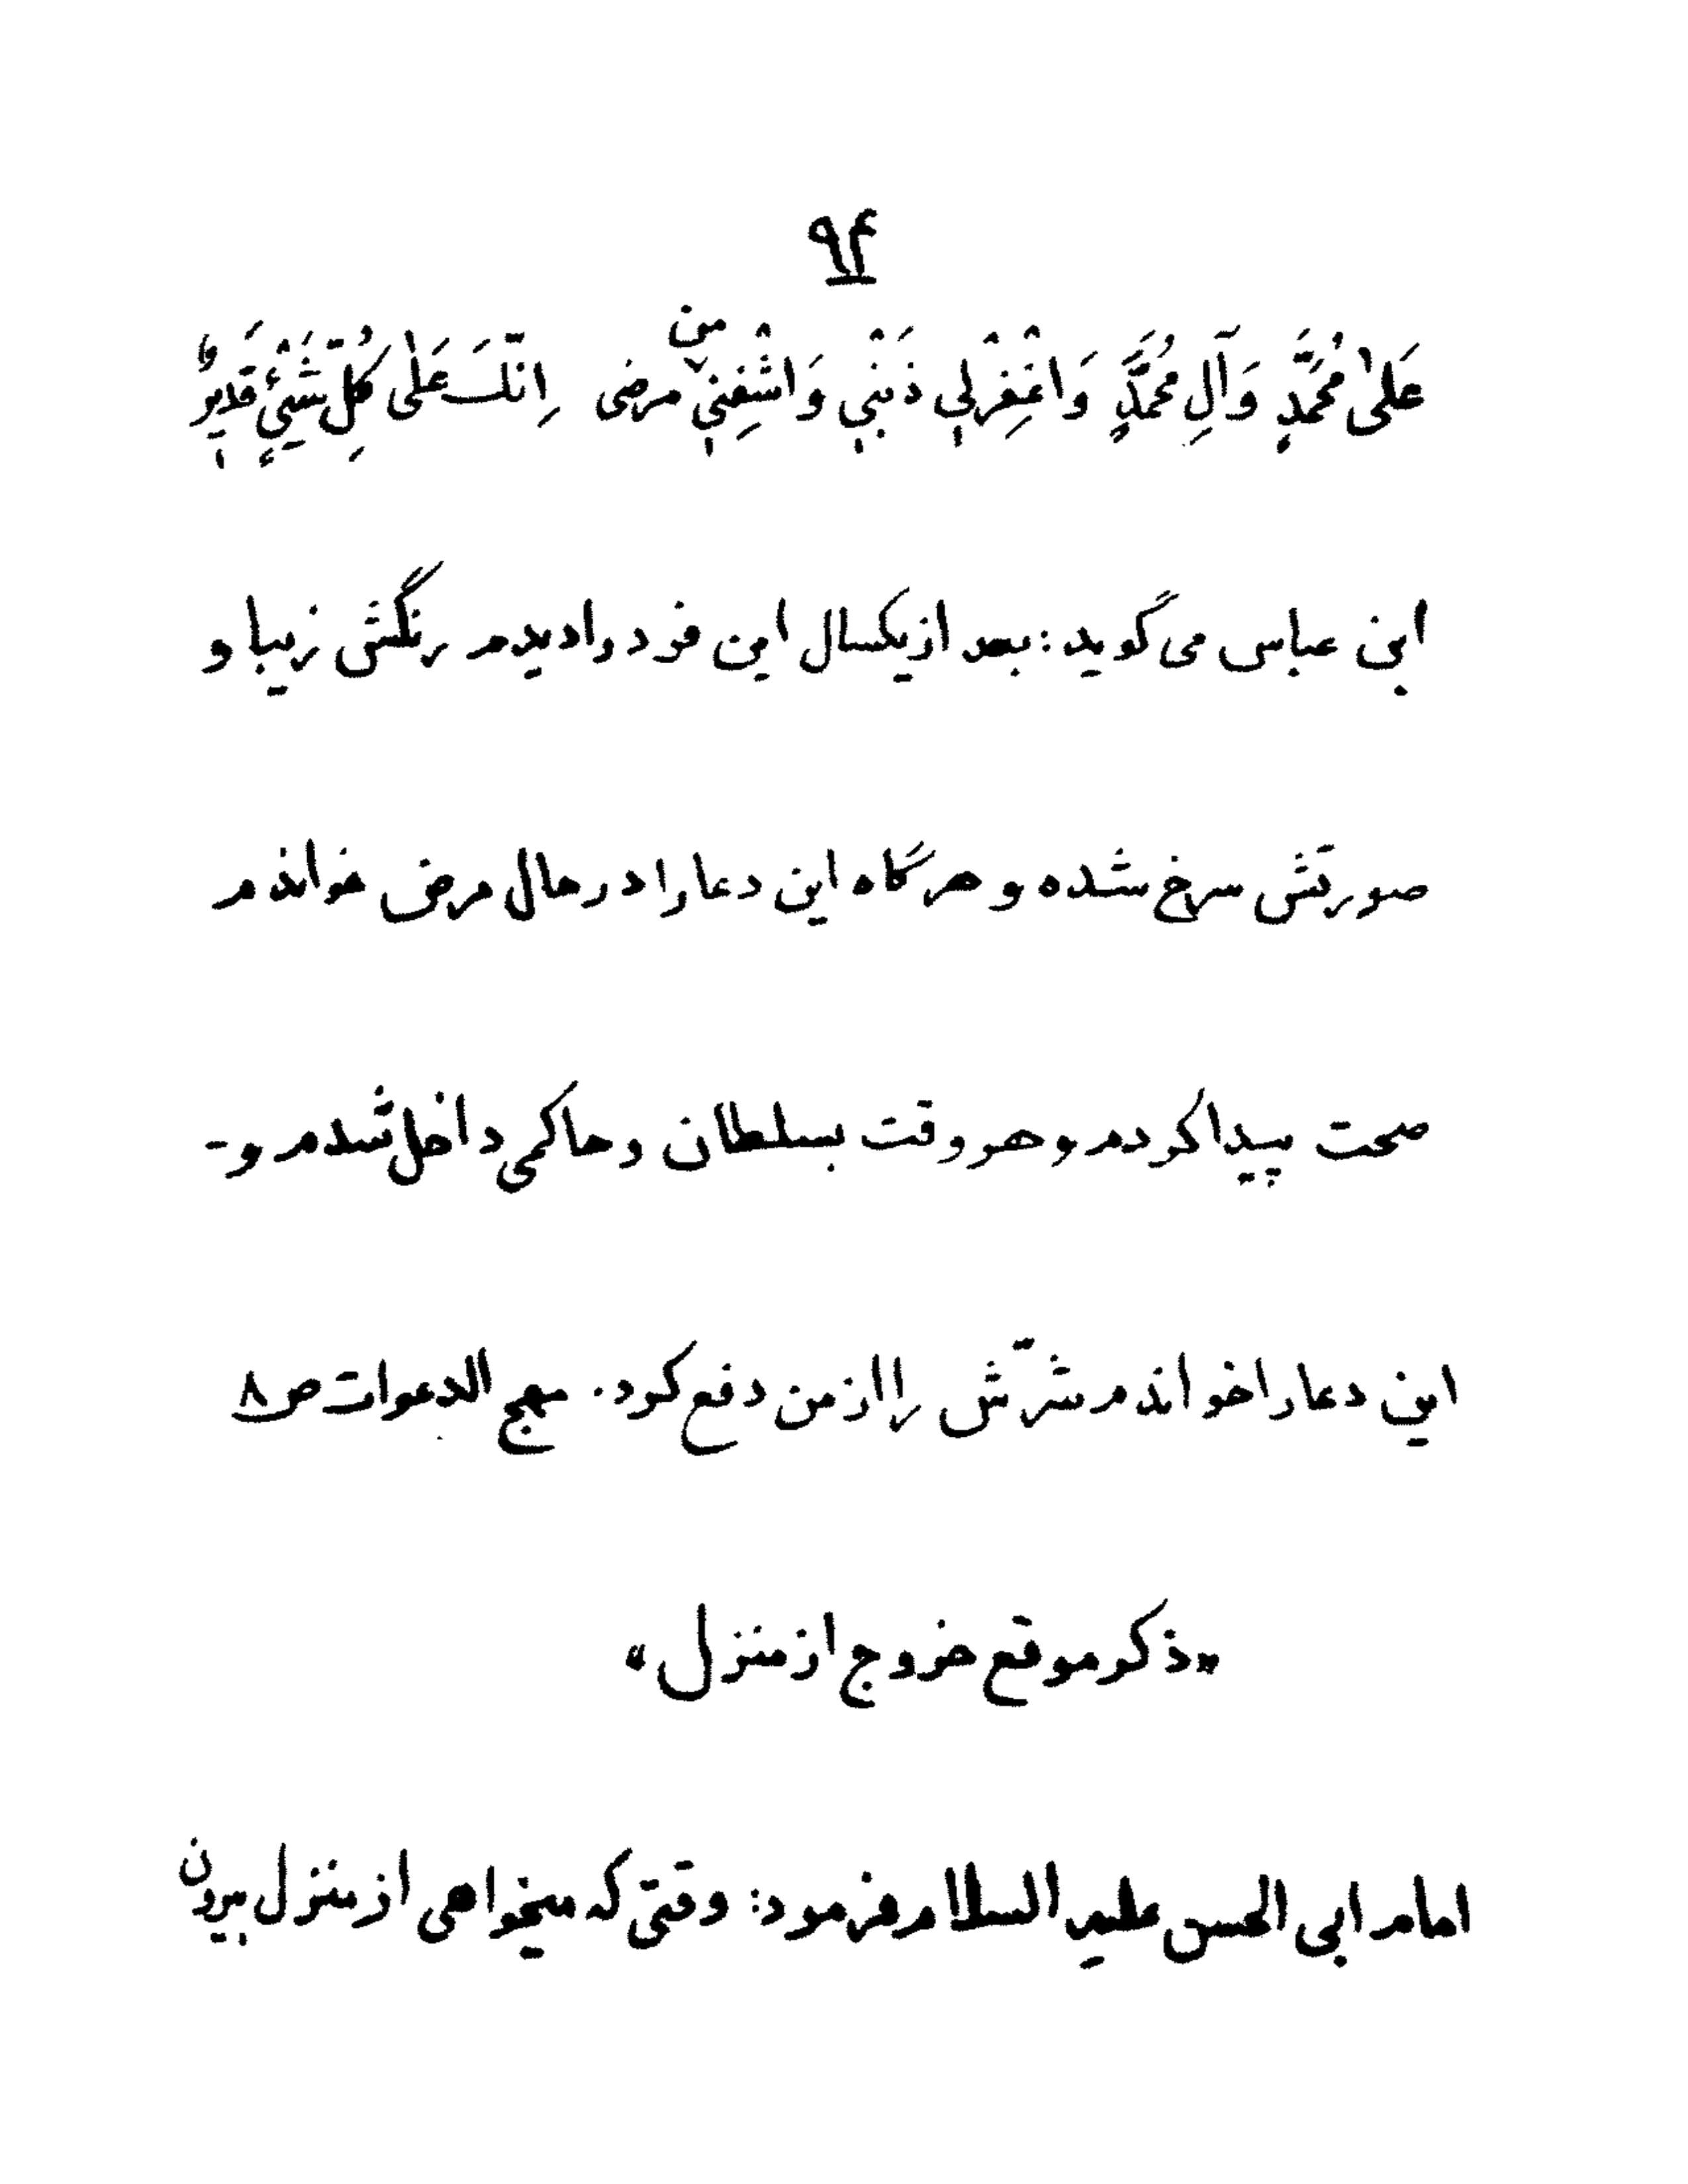 ۹۴
عَلىٰ مُحَمَّدٍ وَآلِ مُحَمَّدٍ وَاغْفِرْلي ذَنْبي وَاشْفِني من مرضی اِنّکَ عَلىٰ کُلِّ شَيْئٍ قَديرٌ
ابن عباس می‌گوید: بعد از یکسال این فرد را دیدم رنگش زیبا و
صورتش سرخ شده و هرگاه این دعا را در حال مرض خواندم
صحت پیدا کردم و هر وقت بسلطان و حاکمی داخل شدم و-
این دعا را خواندم شرّش را از من دفع کرد. مهج الدعوات ص۸
«ذکر موقع خروج از منزل»
امام ابی الحسن علیه السلام فرمود: وقتی که میخواهی از منزل بیرون